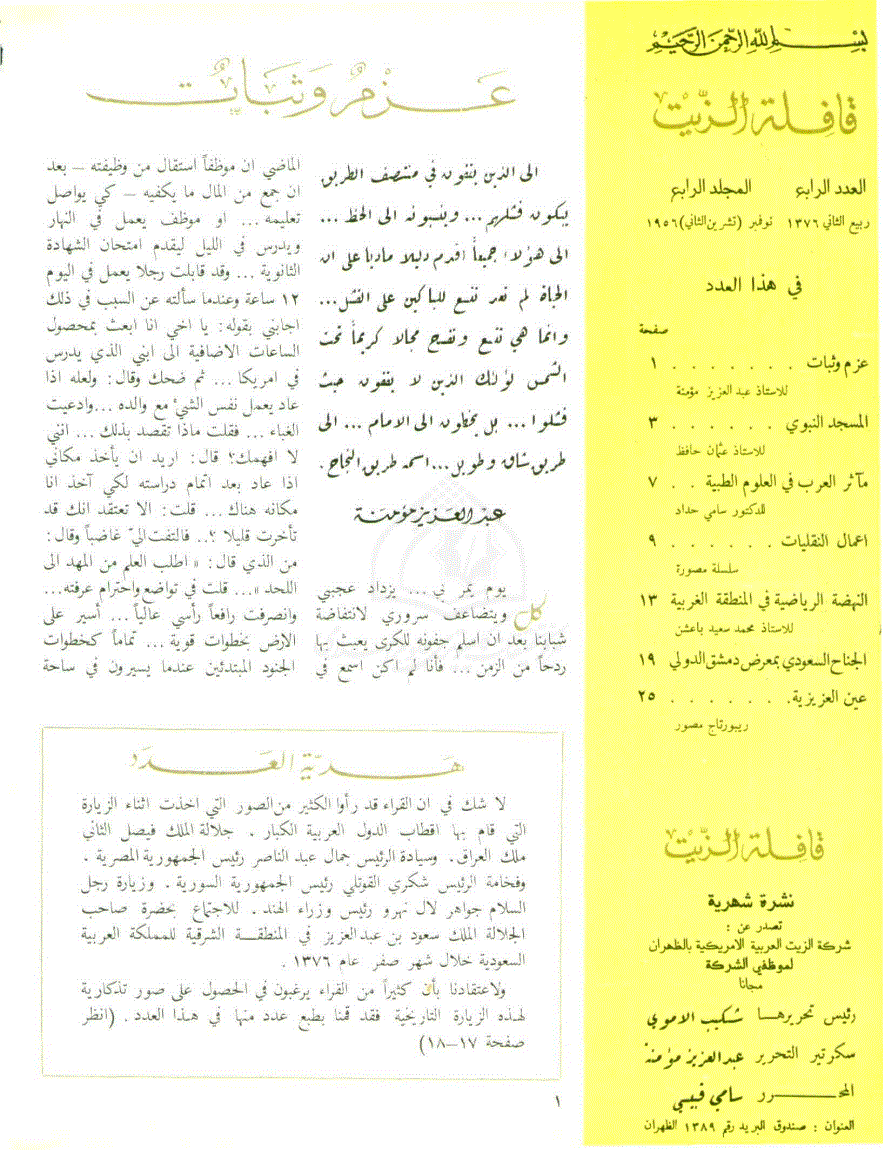 بسم الله الرحمن الرحيم
قافلة الزيت
العدد الرابع المجلد الرابع
ربيع الثاني ١٣٧٦ نوفمبر (تشرين الثاني) ١٩٥٦
في هذا العدد
صفحة
عزم وثبات . . . . . . . ١
للاستاذ عبد العزيز مؤمنة
المسجد النبوي . . . . . . ٣
للاستاذ عثمان حافظ
مآثر العرب في العلوم الطبية . . ٧
للدكتور سامي حداد
اعمال النقليات . . . . . . ٩
سلسلة مصورة
النهضة الرياضية في المنطقة الغربية ١٣
للاستاذ محمد سعيد باعشن
الجناح السعودي بمعرض دمشق الدولي ١٩
عين العزيزية . . . . . . . ٢٥
ريبورتاج مصور
قافلة الزيت
نشرة شهرية
تصدر عن :
شركة الزيت العربية الامريكية بالظهران
لموظفي الشركة
مجانا
رئيس تحريرها شكيب الاموي
سكرتير التحرير عبد العزيز مؤمنة
المحرر سامي قبيسي
العنوان : صندوق البريد رقم ١٣٨٩ الظهران
عزم وثبات
الى الذين يقفون في منتصف الطريق
يبكون فشلهم ... وينسبونه الى الحظ ...
الى هؤلاء جميعاً اقدم دليلا ماديا على ان
الحياة لم تعد تتسع للباكين على الفشل ...
وانما هي تتسع وتفسح مجالا كريماً تحت
الشمس لؤلئك الذين لا يقفون حيث
فشلوا ... بل يخطون الى الامام ... الى
طريق شاق وطويل ... اسمه طريق النجاح .
عبد العزيز مؤمنة
كل يوم يمر بي ... يزداد عجبي
ويتضاعف سروري لانتفاضة
شبابنا بعد ان اسلم جفونه للكرى يعبث بها
ردحاً من الزمن ... فأنا لم اكن اسمع في
الماضي ان موظفاً استقال من وظيفته – بعد
ان جمع من المال ما يكفيه – كي يواصل
تعليمه ... او موظف يعمل في النهار
ويدرس في الليل ليقدم امتحان الشهادة
الثانوية ... وقد قابلت رجلا يعمل في اليوم
١٢ ساعة وعندما سألته عن السبب في ذلك
اجابني بقوله : يا اخي انا ابعث بمحصول
الساعات الاضافية الى ابني الذي يدرس
في امريكا ... ثم ضحك وقال : ولعله اذا
عاد يعمل نفس الشيء مع والده ... وادعيت
الغباء ... فقلت ماذا تقصد بذلك ... انني
لا افهمك ؟ قال : اريد ان يأخذ مكاني
اذا عاد بعد اتمام دراسته لكي آخذ انا
مكانه هناك ... قلت : الا تعتقد انك قد
تأخرت قليلا ؟.. فالتفت الي غاضباً وقال :
من الذي قال : « اطلب العلم من المهد الى
اللحد » ... قلت في تواضع واحترام عرفته ...
وانصرفت رافعاً رأسي عالياً ... أسير على
الارض بخطوات قوية ... تماماً كخطوات
الجنود المبتدئين عندما يسيرون في ساحة
هدية العدد
لا شك في ان القراء قد رأوا الكثير من الصور التي اخذت اثناء الزيارة
التي قام بها اقطاب الدول العربية الكبار . جلالة الملك فيصل الثاني
ملك العراق . وسيادة الرئيس جمال عبد الناصر رئيس الجمهورية المصرية .
وفخامة الرئيس شكري القوتلي رئيس الجمهورية السورية . وزيارة رجل
السلام جواهر لال نهرو رئيس وزراء الهند . للاجتماع بحضرة صاحب
الجلالة الملك سعود بن عبد العزيز في المنطقة الشرقية للمملكة العربية
السعودية خلال شهر صفر عام ١٣٧٦ .
ولاعتقادنا بأن كثيراً من القراء يرغبون في الحصول على صور تذكارية
لهذه الزيارة التاريخية فقد قمنا بطبع عدد منها في هذا العدد . (انظر
صفحة ١٧–١٨)
١